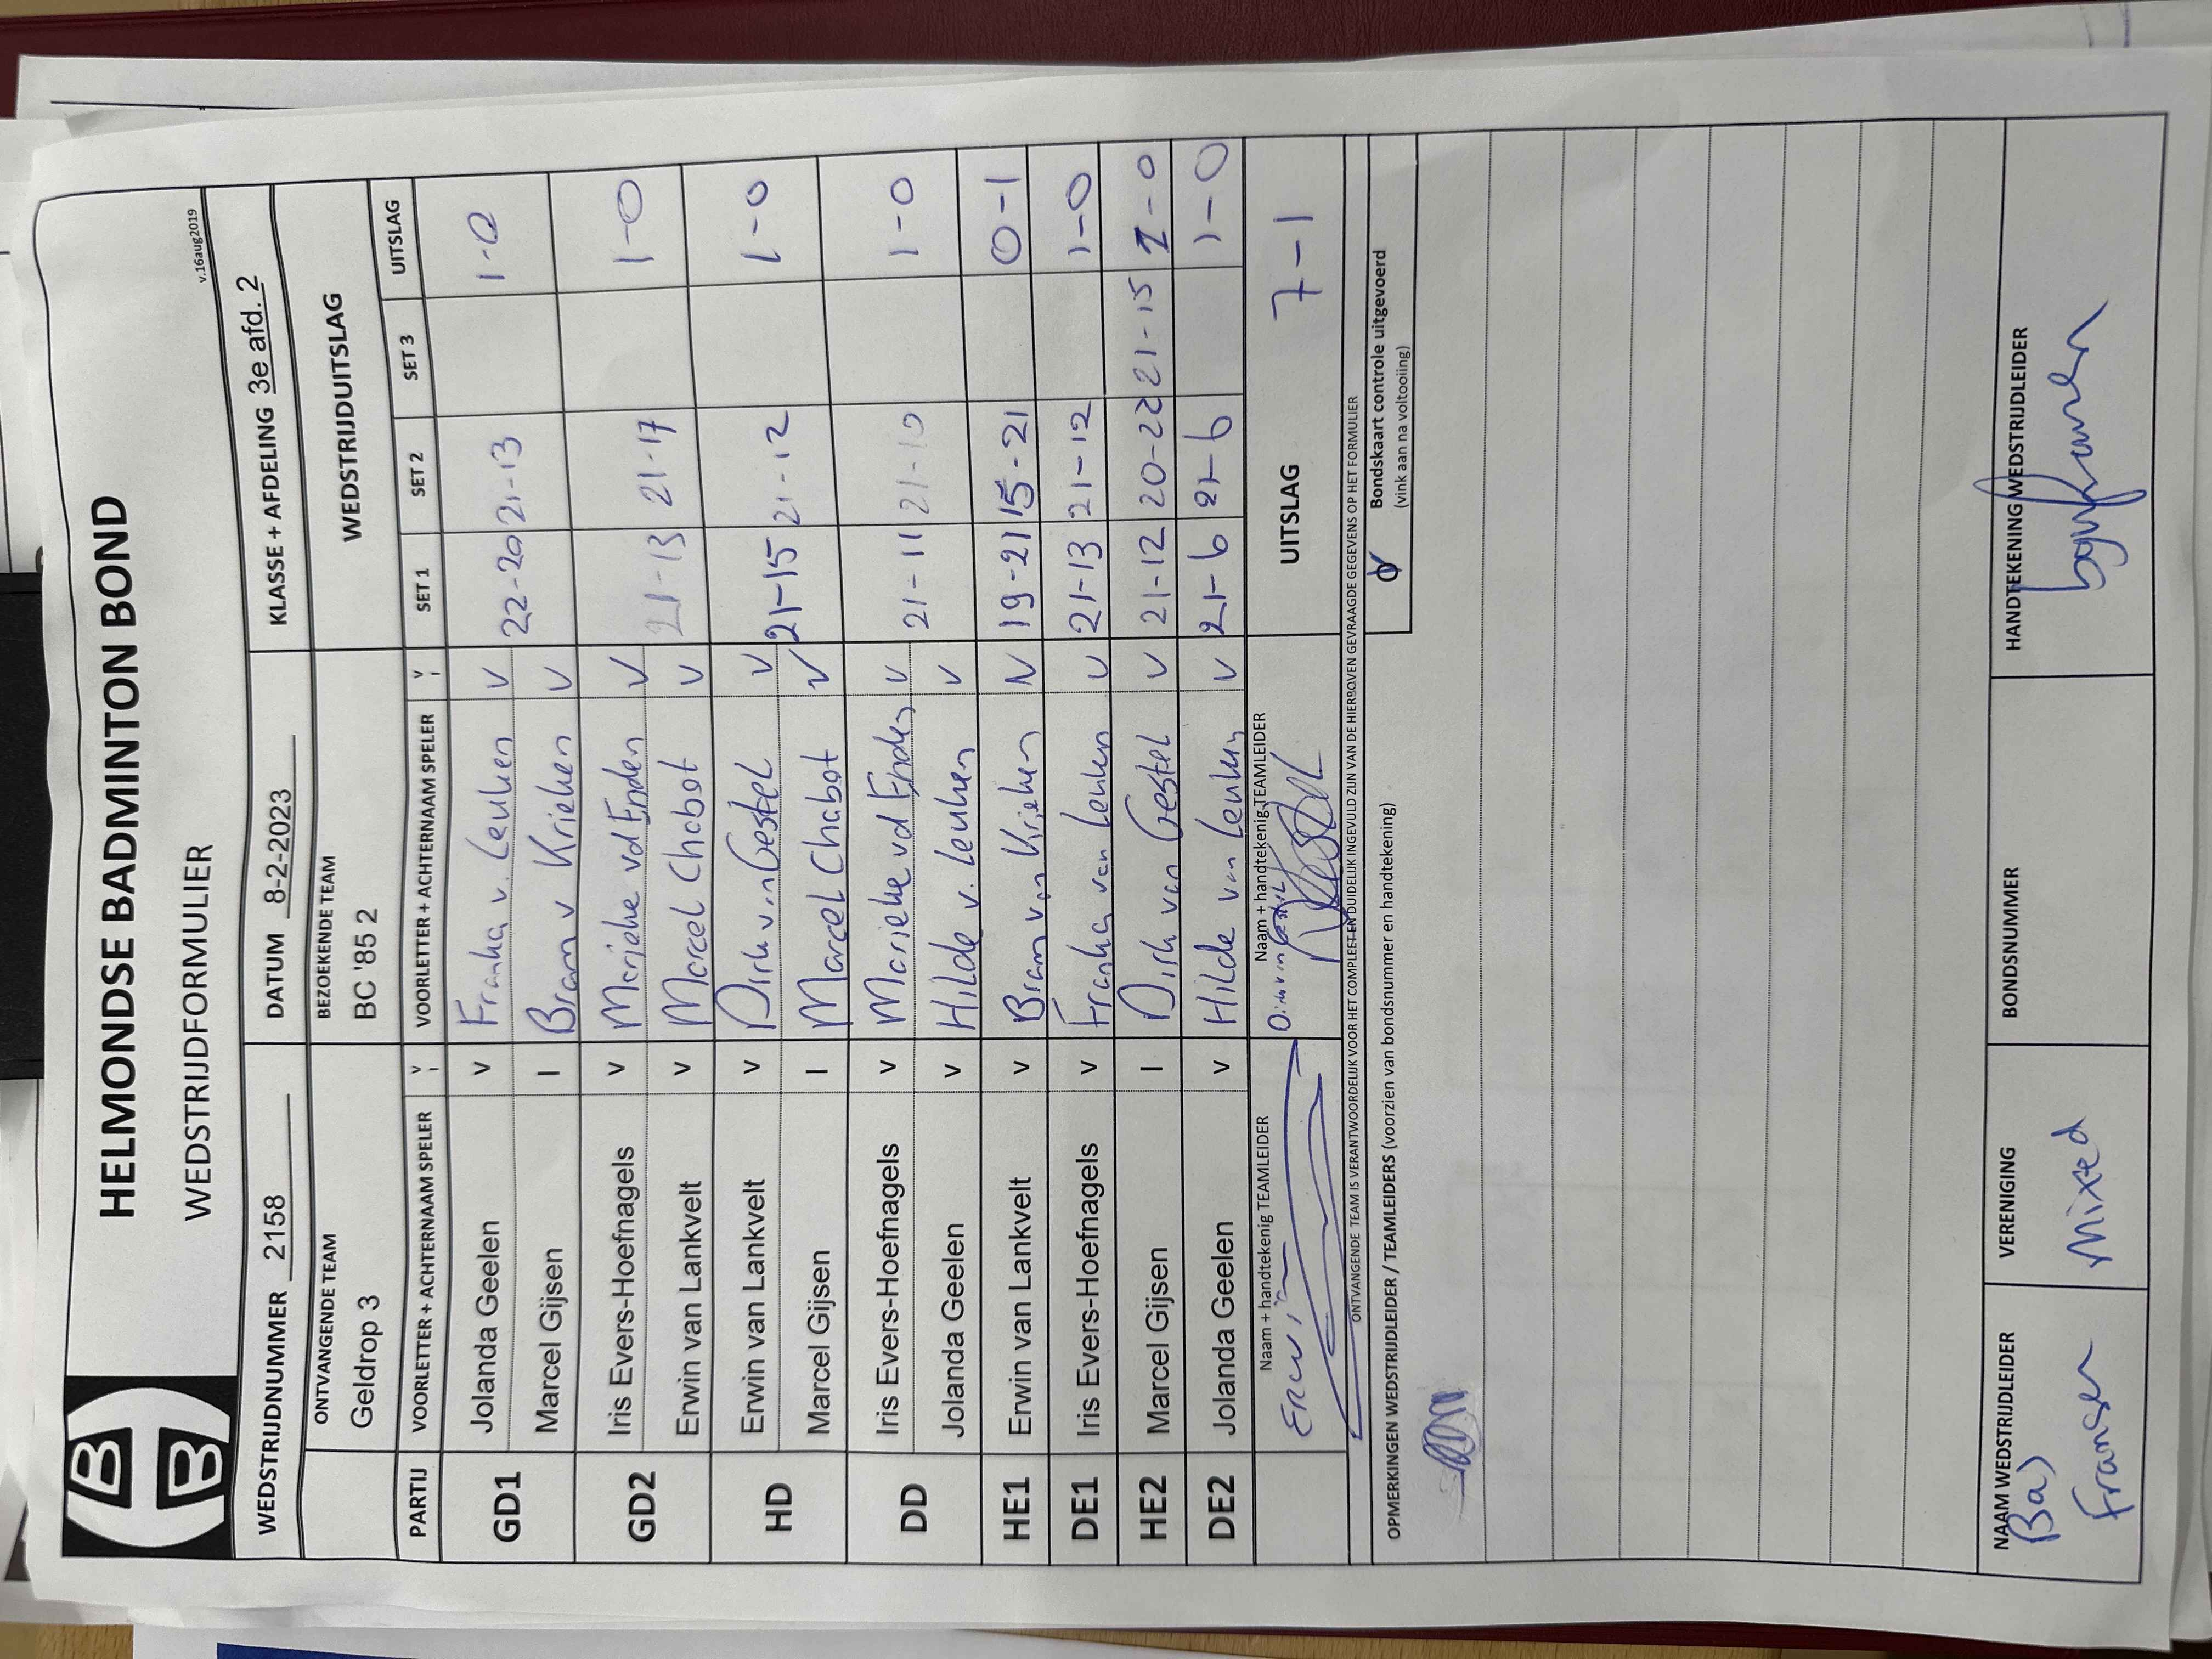 HELMONDSE BADMINTON BOND
WEDSTRIJDFORMULIER
v.16aug2019
WEDSTRIJDNUMMER 2158 DATUM 8-2-2023 KLASSE + AFDELING 3e afd. 2
ONTVANGENDE TEAM BEZOEKENDE TEAM WEDSTRIJDUITSLAG
Geldrop 3 BC '85 2
PARTIJ VOORLETTER + ACHTERNAAM SPELER V I VOORLETTER + ACHTERNAAM SPELER V I SET 1 SET 2 SET 3 UITSLAG
GD1 Jolanda Geelen v Franka v. Leuken V 22-20 21-13 1-0
Marcel Gijsen I Bram v Krieken V
GD2 Iris Evers-Hoefnagels v Marieke vd Enden V 21-13 21-17 1-0
Erwin van Lankvelt v Marcel Chabot V
HD Erwin van Lankvelt v Dirk van Gestel V 21-15 21-12 1-0
Marcel Gijsen I Marcel Chabot V
DD Iris Evers-Hoefnagels v Marieke vd Enden V 21-11 21-10 1-0
Jolanda Geelen v Hilde v. Leuken V
HE1 Erwin van Lankvelt v Bram van Krieken N 19-21 15-21 0-1
DE1 Iris Evers-Hoefnagels v Franka van Leuken V 21-13 21-12 1-0
HE2 Marcel Gijsen I Dirk van Gestel V 21-12 20-22 21-15 1-0
DE2 Jolanda Geelen v Hilde van Leuken V 21-6 21-6 1-0
Naam + handtekenig TEAMLEIDER Naam + handtekenig TEAMLEIDER UITSLAG 7-1
Erwin Dirk van Gestel
ONTVANGENDE TEAM IS VERANTWOORDELIJK VOOR HET COMPLEET EN DUIDELIJK INGEVULD ZIJN VAN DE HIERBOVEN GEVRAAGDE GEGEVENS OP HET FORMULIER
OPMERKINGEN WEDSTRIJDLEIDER / TEAMLEIDERS (voorzien van bondsnummer en handtekening)
Bondskaart controle uitgevoerd
(vink aan na voltooiing)
NAAM WEDSTRIJDLEIDER VERENIGING BONDSNUMMER HANDTEKENING WEDSTRIJDLEIDER
Bas Mixed
Fransen